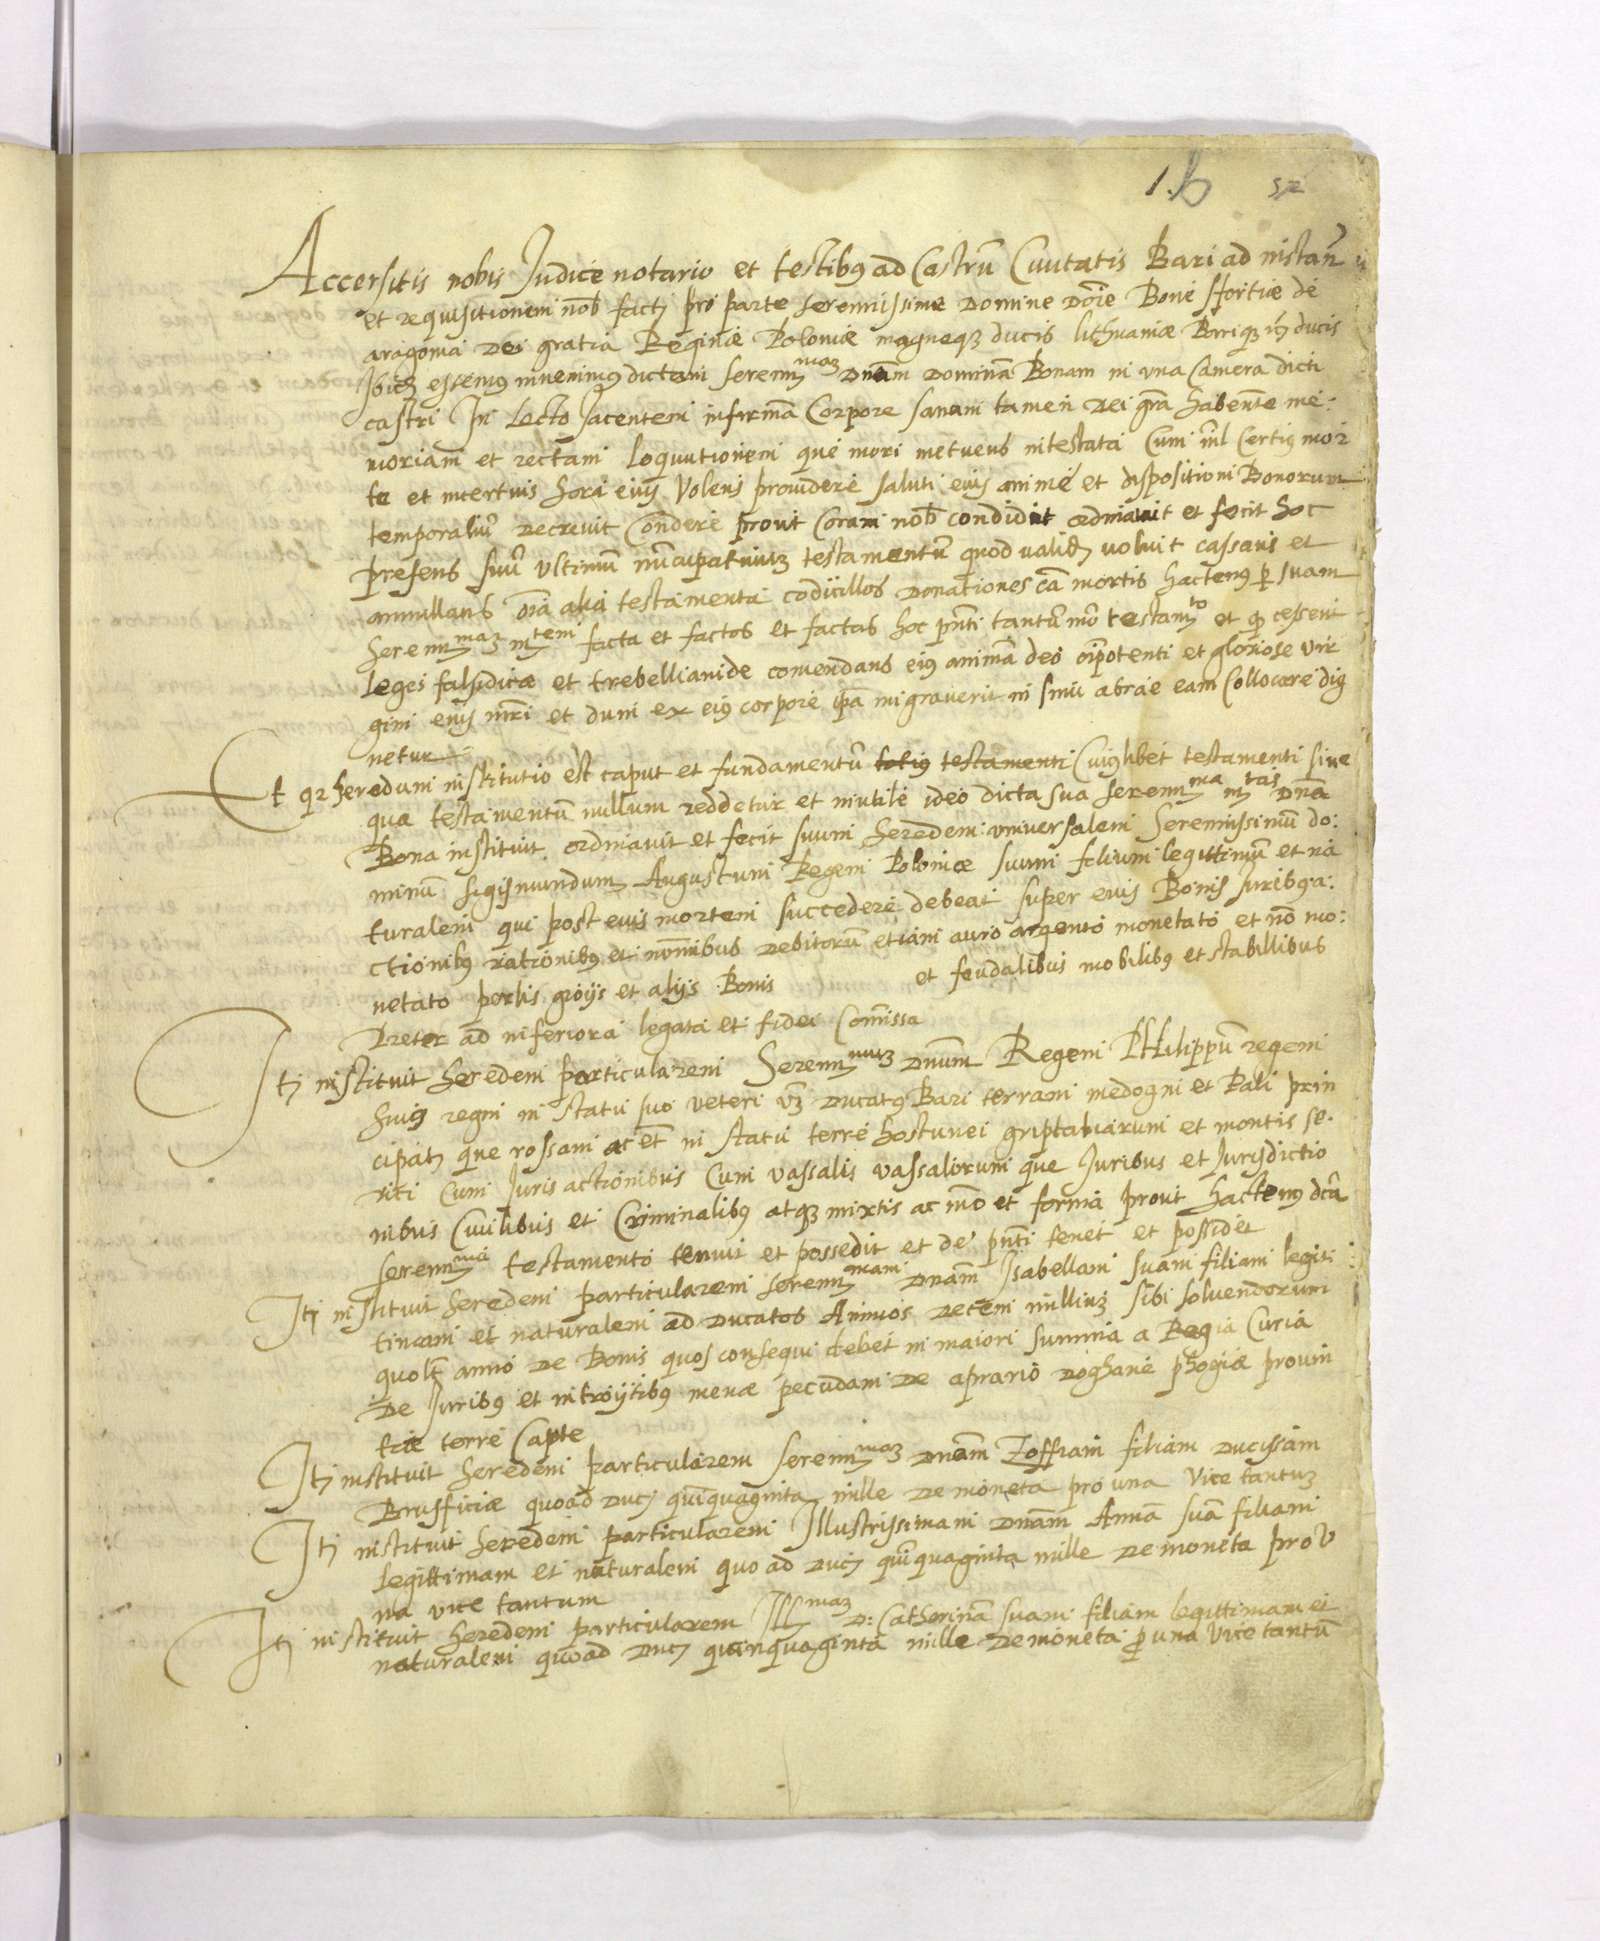 1.b 52
Accersitis nobis Judice notario et testibꝰ ad Castrū Civitatis Bari ad nistan̄
et requisitionem nob̄ factȝ pro parte serenissime Domine Dōne Bone Sfortiæ de
aragonia Dei gratia Reginæ Poloniæ magneqȝ ducis lithuaniæ Barique ducis
Ibidȝ essemꝰ invenimꝰ dictam serenȝ maȝ Dnām Dominā Bonam in una Camera dicti
castri In Lecto Jacentem infirmā Corpore sanam tamen Dei grā habentē me:
moriam et rectam loquutionem que mori metuens intestata Cum nīl certiꝰ mor
te et incertius hora eius Volens providere saluti eius anime et dispositioni Bonorum
temporaliū Decrevit Condere prout Coram nob̄ condidit ordinavit et fecit hoc
presens suū ultimū nūcupativuȝ testamentū quod validȝ voluit cassans et
annullans oīa alia testamenta codicillos Donationes cā mortis hactenꝰ ꝑ suam
Serenȝ maȝ mȝ tem facta et factos et factas hoc pn̄ti tantū mō testamȝ to et ꝙ cessent
leges falsidiæ et trebellianide comendans eiꝰ animā deo oīpotenti et gloriose vir
gini eius mrī et dum ex eiꝰ corpore ipā migraverit in sinu abrae eam Collocare dig
netur
Et qꝛ heredum institutio est caput et fundamentū totiꝰ testamenti Cuiꝰlibet testamenti sine
qua testamentū nullum reddetur et inutile ideo dicta sua serenȝ ma mȝ tas Dnā
Bona instituit ordinavit et fecit suum heredem universalem Serenissimū do:
minū sigismundum Augustum Regem Poloniæ suum filium legittimū et na
turalem qui post eius mortem succedere debeat super eius Bonis Juribꝰ a:
ctionibꝰ rationibꝰ et nōnibus Debitorū etiam auro argento monetato et nō mo:
netato perlis gioijs et alijs Bonis et feudalibus mobilibꝰ et stabillibus
Preter ad inferiora legata et fidei Comissa
Itȝ instituit heredem particularem Serenȝ muȝ Dnūm Regem PHilippū regem
huiꝰ regni in statu suo veteri vȝ Ducatꝰ Bari terram medogni et Pali prin
cipatȝ que rossani ac et̄ in statu terre hostunei griptaliarum et montis se:
rici Cum Juris actionibus Cum vassalis vassalorum que Juribus et Jurisdictio
nibus Civilibus et Criminalibꝰ atqȝ mixtis ac mō et forma prout hactenꝰ dcā
serenȝ ma testamento tenuit et possedit et de pn̄ti tenet et possidet
Itȝ instituit heredem particularem serenȝ mam Dnām Isabellam suam filiam legiti:
timam et naturalem ad Ducatos Annuos Decem milliuȝ sibi solvendorum
quolt̄ anno de Bonis quos consequi debet in maiori summa a Regia Curia
De Juribꝰ et introijtibꝰ menæ pecudam De aprario Doghane phogiæ provin
tie terre Capte
Itȝ instituit heredem particularem serenȝ maȝ Dnām Zoffiam filiam Ducissam
Brusficiæ quoad Ducȝ quīquaginta mille De moneta pro una Vice tantuȝ
Itȝ instituit heredem particularem Illustrissimam Dnām Annā suā filiam
legittimam et naturalem quo ad Ducȝ quīquaginta mille De moneta pro u
na vice tantum
Itȝ instituit heredem particularem Ill maȝ D: Catherinā suam filiam legittimam et
naturalem quoad Ducȝ quinquaginta mille De moneta ꝑ una Vice tantū